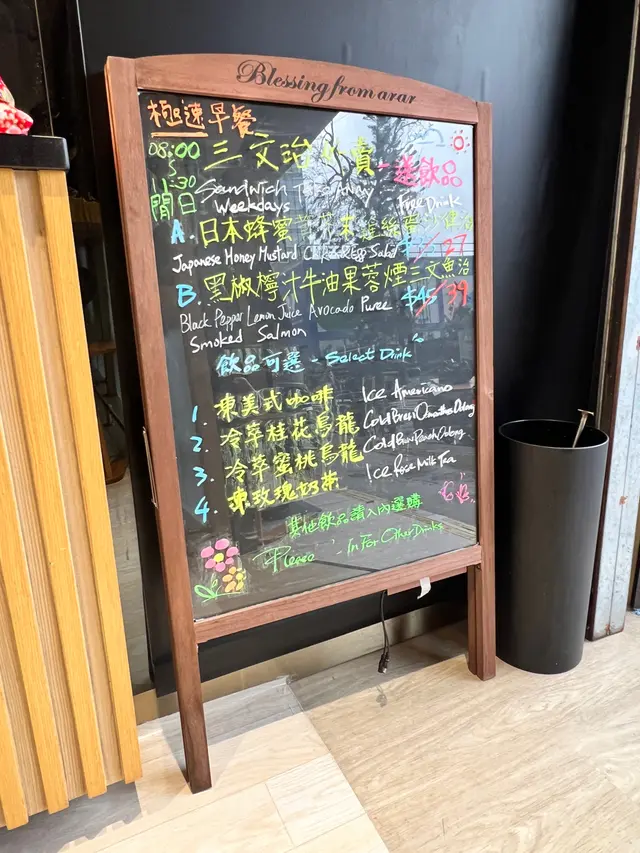 Blessing from arar
極速早餐
08:00
11:30
三文治 外賣 - 送飲品
Sandwich Takeaway Free Drink
Weekdays
A. 日本蜂蜜
Japanese Honey Mustard Chicken & Egg Salad 27
B. 黑椒檸汁牛油果蓉煙三文魚治
Black Pepper Lemon Juice Avocado Puree $45 39
Smoked Salmon
飲品可選 - Select Drink
1. 凍美式咖啡 Ice Americano
2. 冷萃桂花烏龍 Cold Brew Osmanthus Oolong
3. 冷萃蜜桃烏龍 Cold Brew Peach Oolong
4. 凍玫瑰奶茶 Ice Rose Milk Tea
其他飲品請入內選購
Please - In For Other Drinks